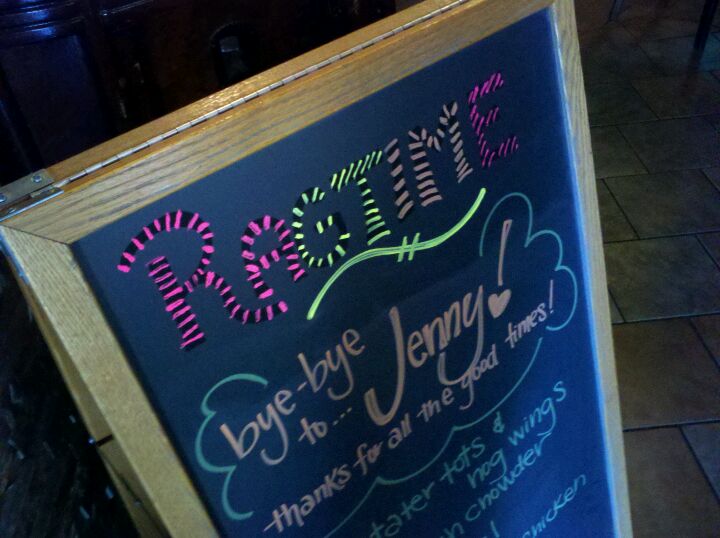 RAGTIME
bye-bye
to... Jenny!
thanks for all the good times!
tater tots &
hog wings
chowder
chicken